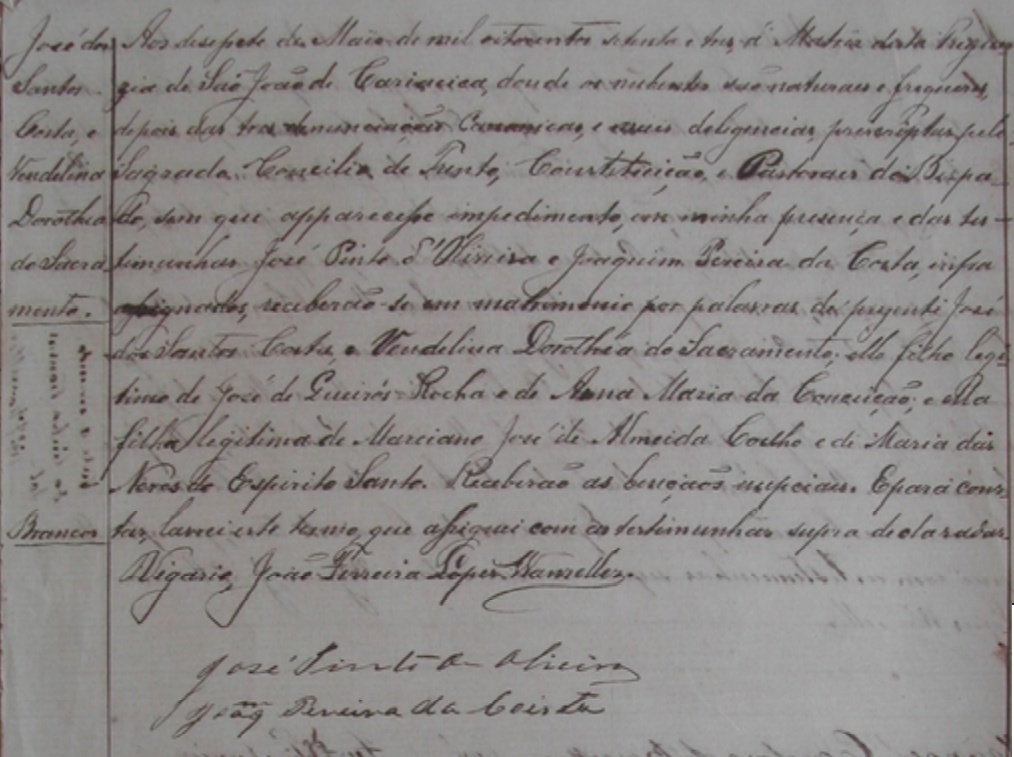 José dos
Santos
Costa, e
Vendelina
Dorothea
do Sacra
mento.
Brancos
Aos desesete de Maio de mil oitocentos setenta e tres, á Matriz desta Fregue
zia de São João de Cariacica, donde os nubentes são naturaes e freguezes,
depois das tres denunciações Canonicas, e mais deligencias, prescriptas pelo
Sagrado Concilio de Trento, Constituição, e Pastoraes do Bispa-
do, sem que apparecesse impedimento, em minha presença e das tes-
timunhas José Pinto d'Oliveira e Joaquim Pereira da Costa, infra
assignados, receberão-se em matrimonio por palavras de presente José
dos Santos Costa, e Vendelina Dorothéa do Sacramento; elle filho legi
timo de José de Queirós Rocha e de Anna Maria da Conceição; e ella
filha legitima de Marciano José de Almeida Coelho e de Maria das
Neves do Espirito Santo. Receberão as bençãos nupciaes. E para cons-
tar, lavrei este termo, que assignei com as testimunhas supra declaradas.
Vigario, João Ferreira Lopes Wanzeller.
José Pinto de Oliveira
Joaq Pereira da Costa